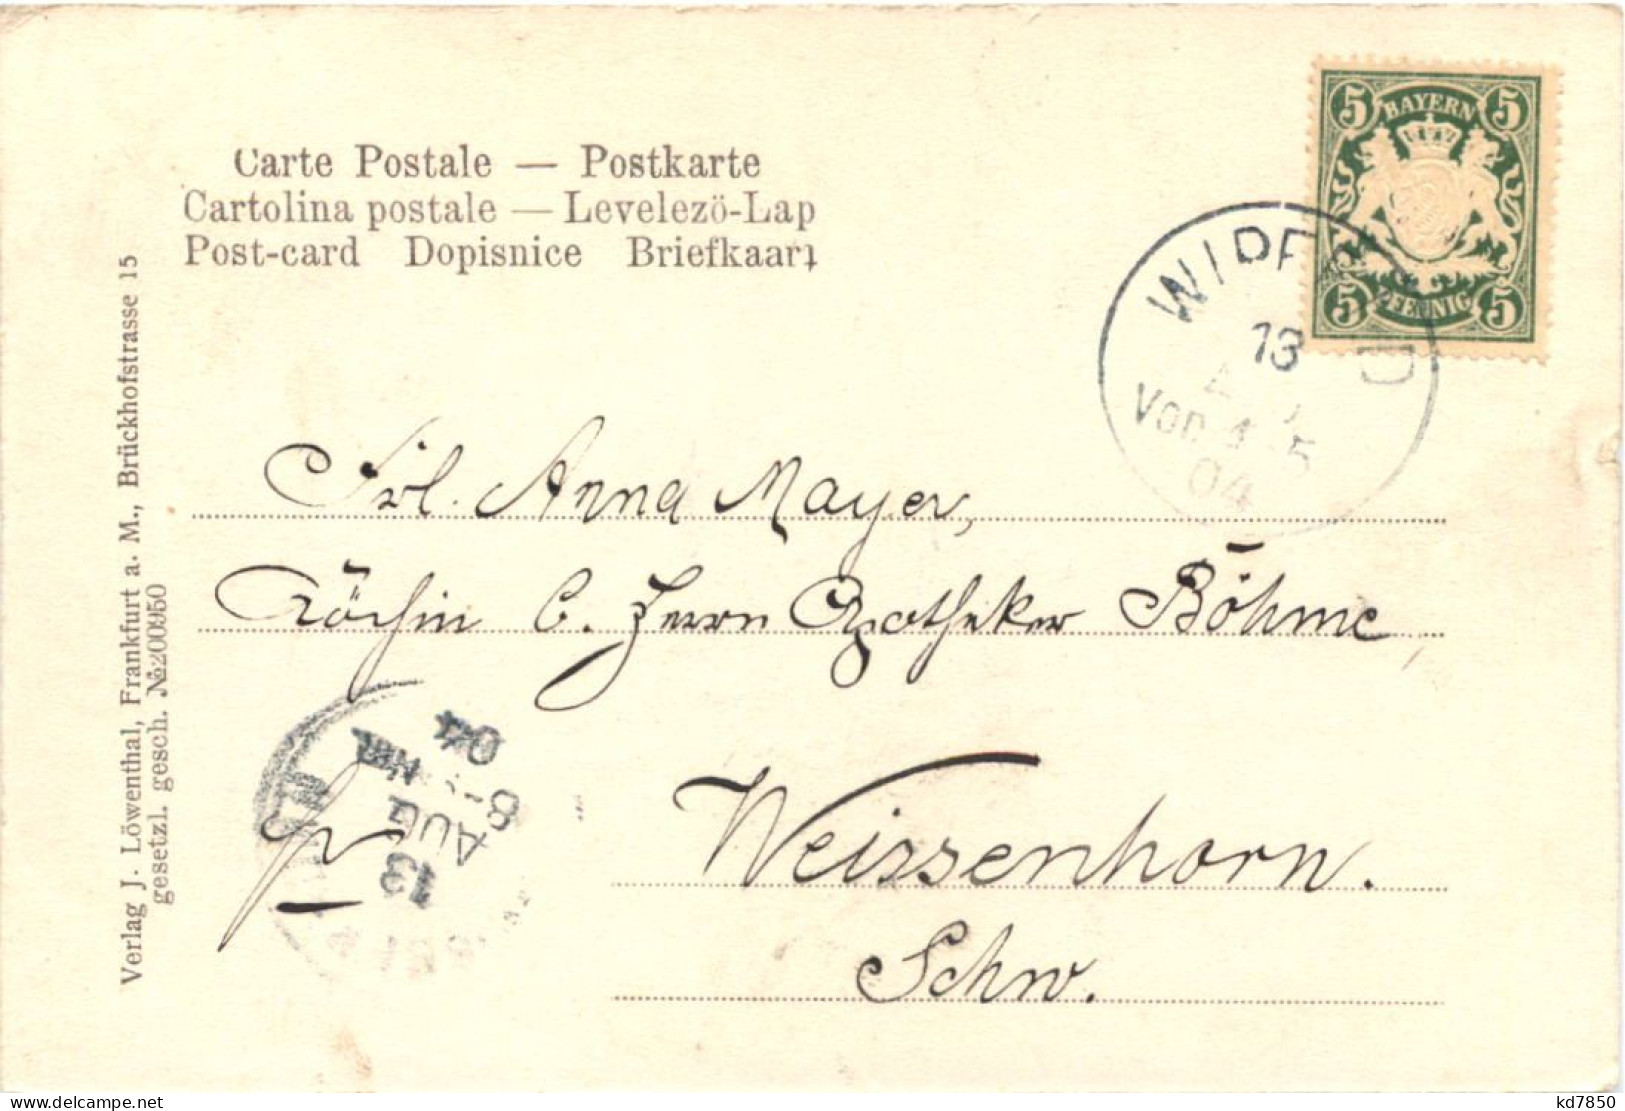 Carte Postale — Postkarte
Cartolina postale — Levelező-Lap
Post-card Dopisnice Briefkaart
BAYERN
5 5
5 5
PFENNIG
13
Vor. 4 5
04
Verlag J. Löwenthal, Frankfurt a. M., Brückhofstrasse 15
gesetzl. gesch. №200950
Frl. Anna Mayer,
Köchin b. Herrn Apotheker Böhme,
Weissenhorn.
Schw.
13
AUG
8-
04
kd7850